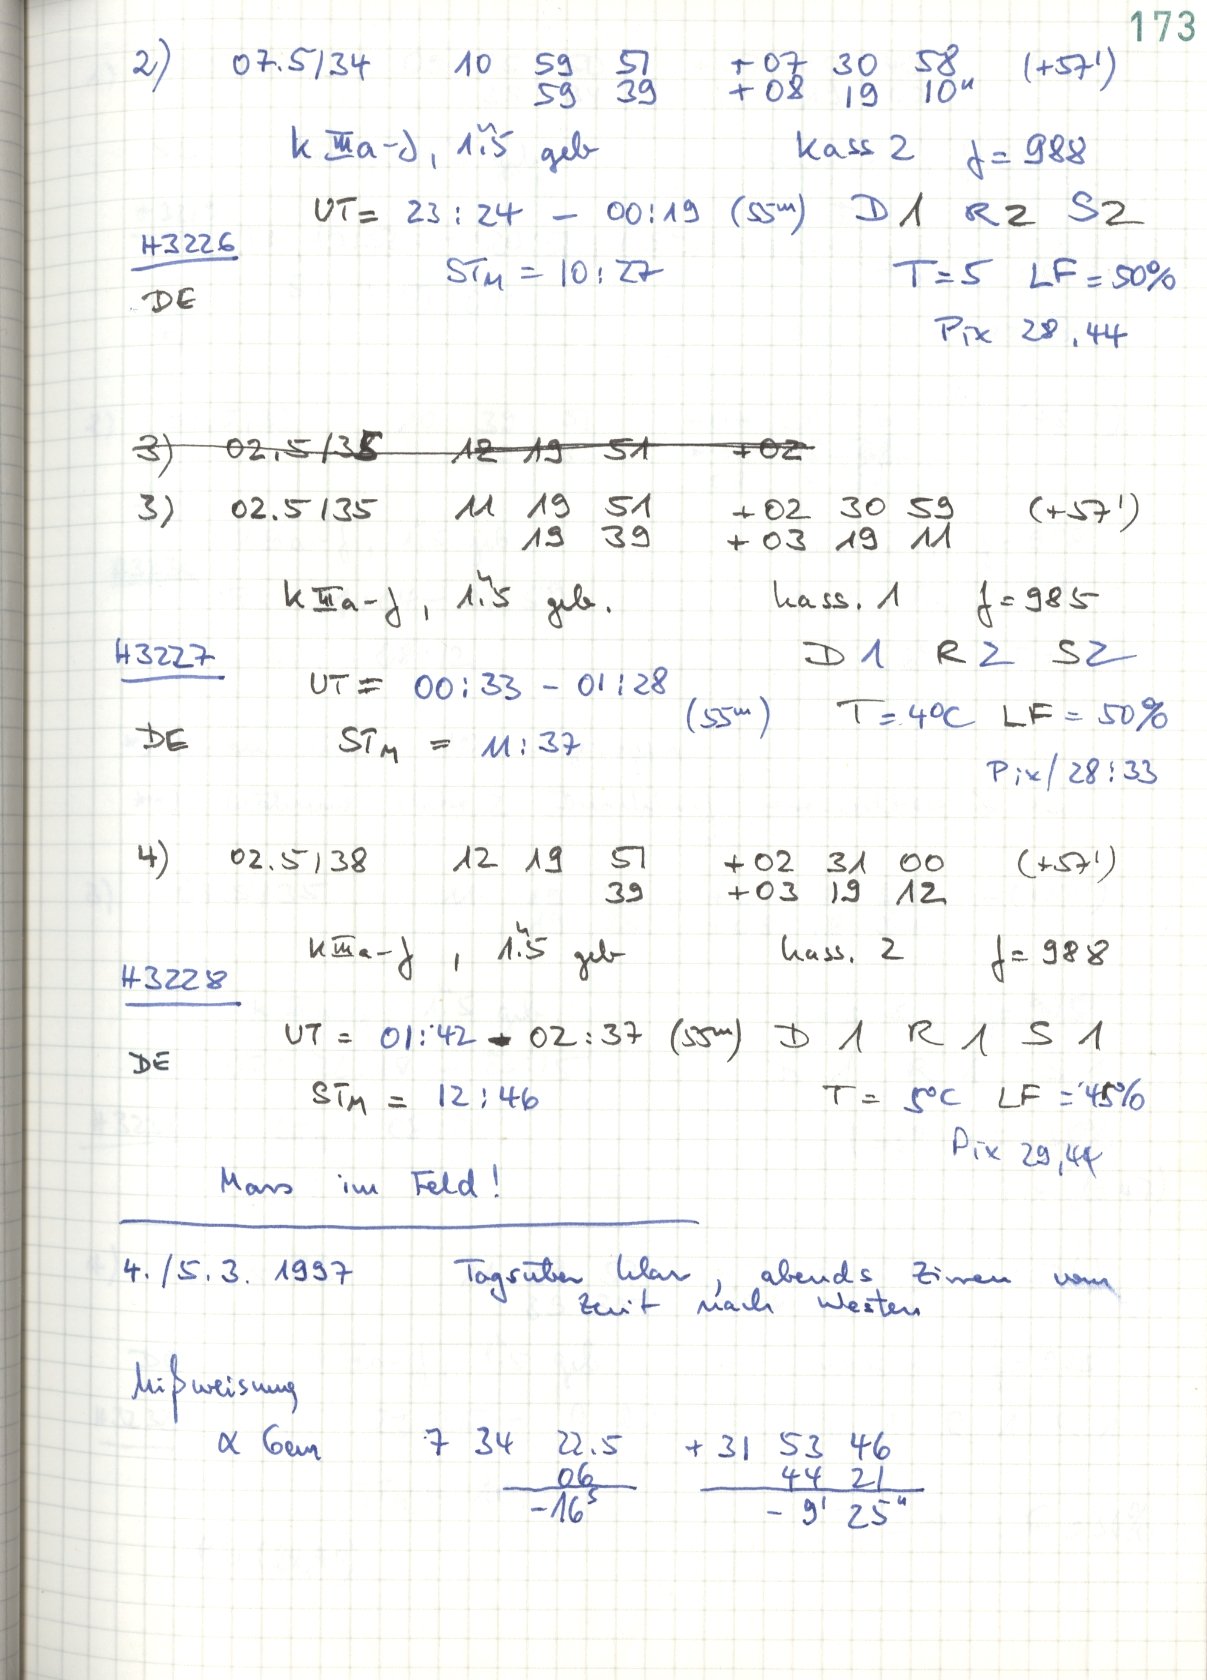 173
2) 07.5/34 10 59 51 +07 30 58 (+57')
59 39 +08 19 10"
k IIIa-J, 1."5 geb Kass 2 f = 988
UT = 23:24 - 00:19 (55m) D1 R2 S2
H3226
STM = 10:27 T=5 LF = 50%
DE
Pix 28,44
3) 02.5/35 12 19 51 +02
3) 02.5/35 11 19 51 +02 30 59 (+57')
19 39 +03 19 11
k IIIa-J, 1."5 geb. Kass. 1 f = 985
H3227 D1 R2 S2
UT = 00:33 - 01:28
(55m) T = 4°C LF = 50%
DE STM = 11:37
Pix/28:33
4) 02.5/38 12 19 51 +02 31 00 (+57')
39 +03 19 12
k IIIa-J, 1."5 geb Kass. 2 f = 988
H3228
UT = 01:42 - 02:37 (55m) D 1 R 1 S 1
DE
STM = 12:46 T = 5°C LF = 45%
Pix 29,44
Mars im Feld!
4./5.3. 1997 Tagsüber klar, abends Zirren vom
Zenit nach Westen
Mißweisung
α Gem 7 34 22.5 +31 53 46
06 44 21
-16s -9' 25"